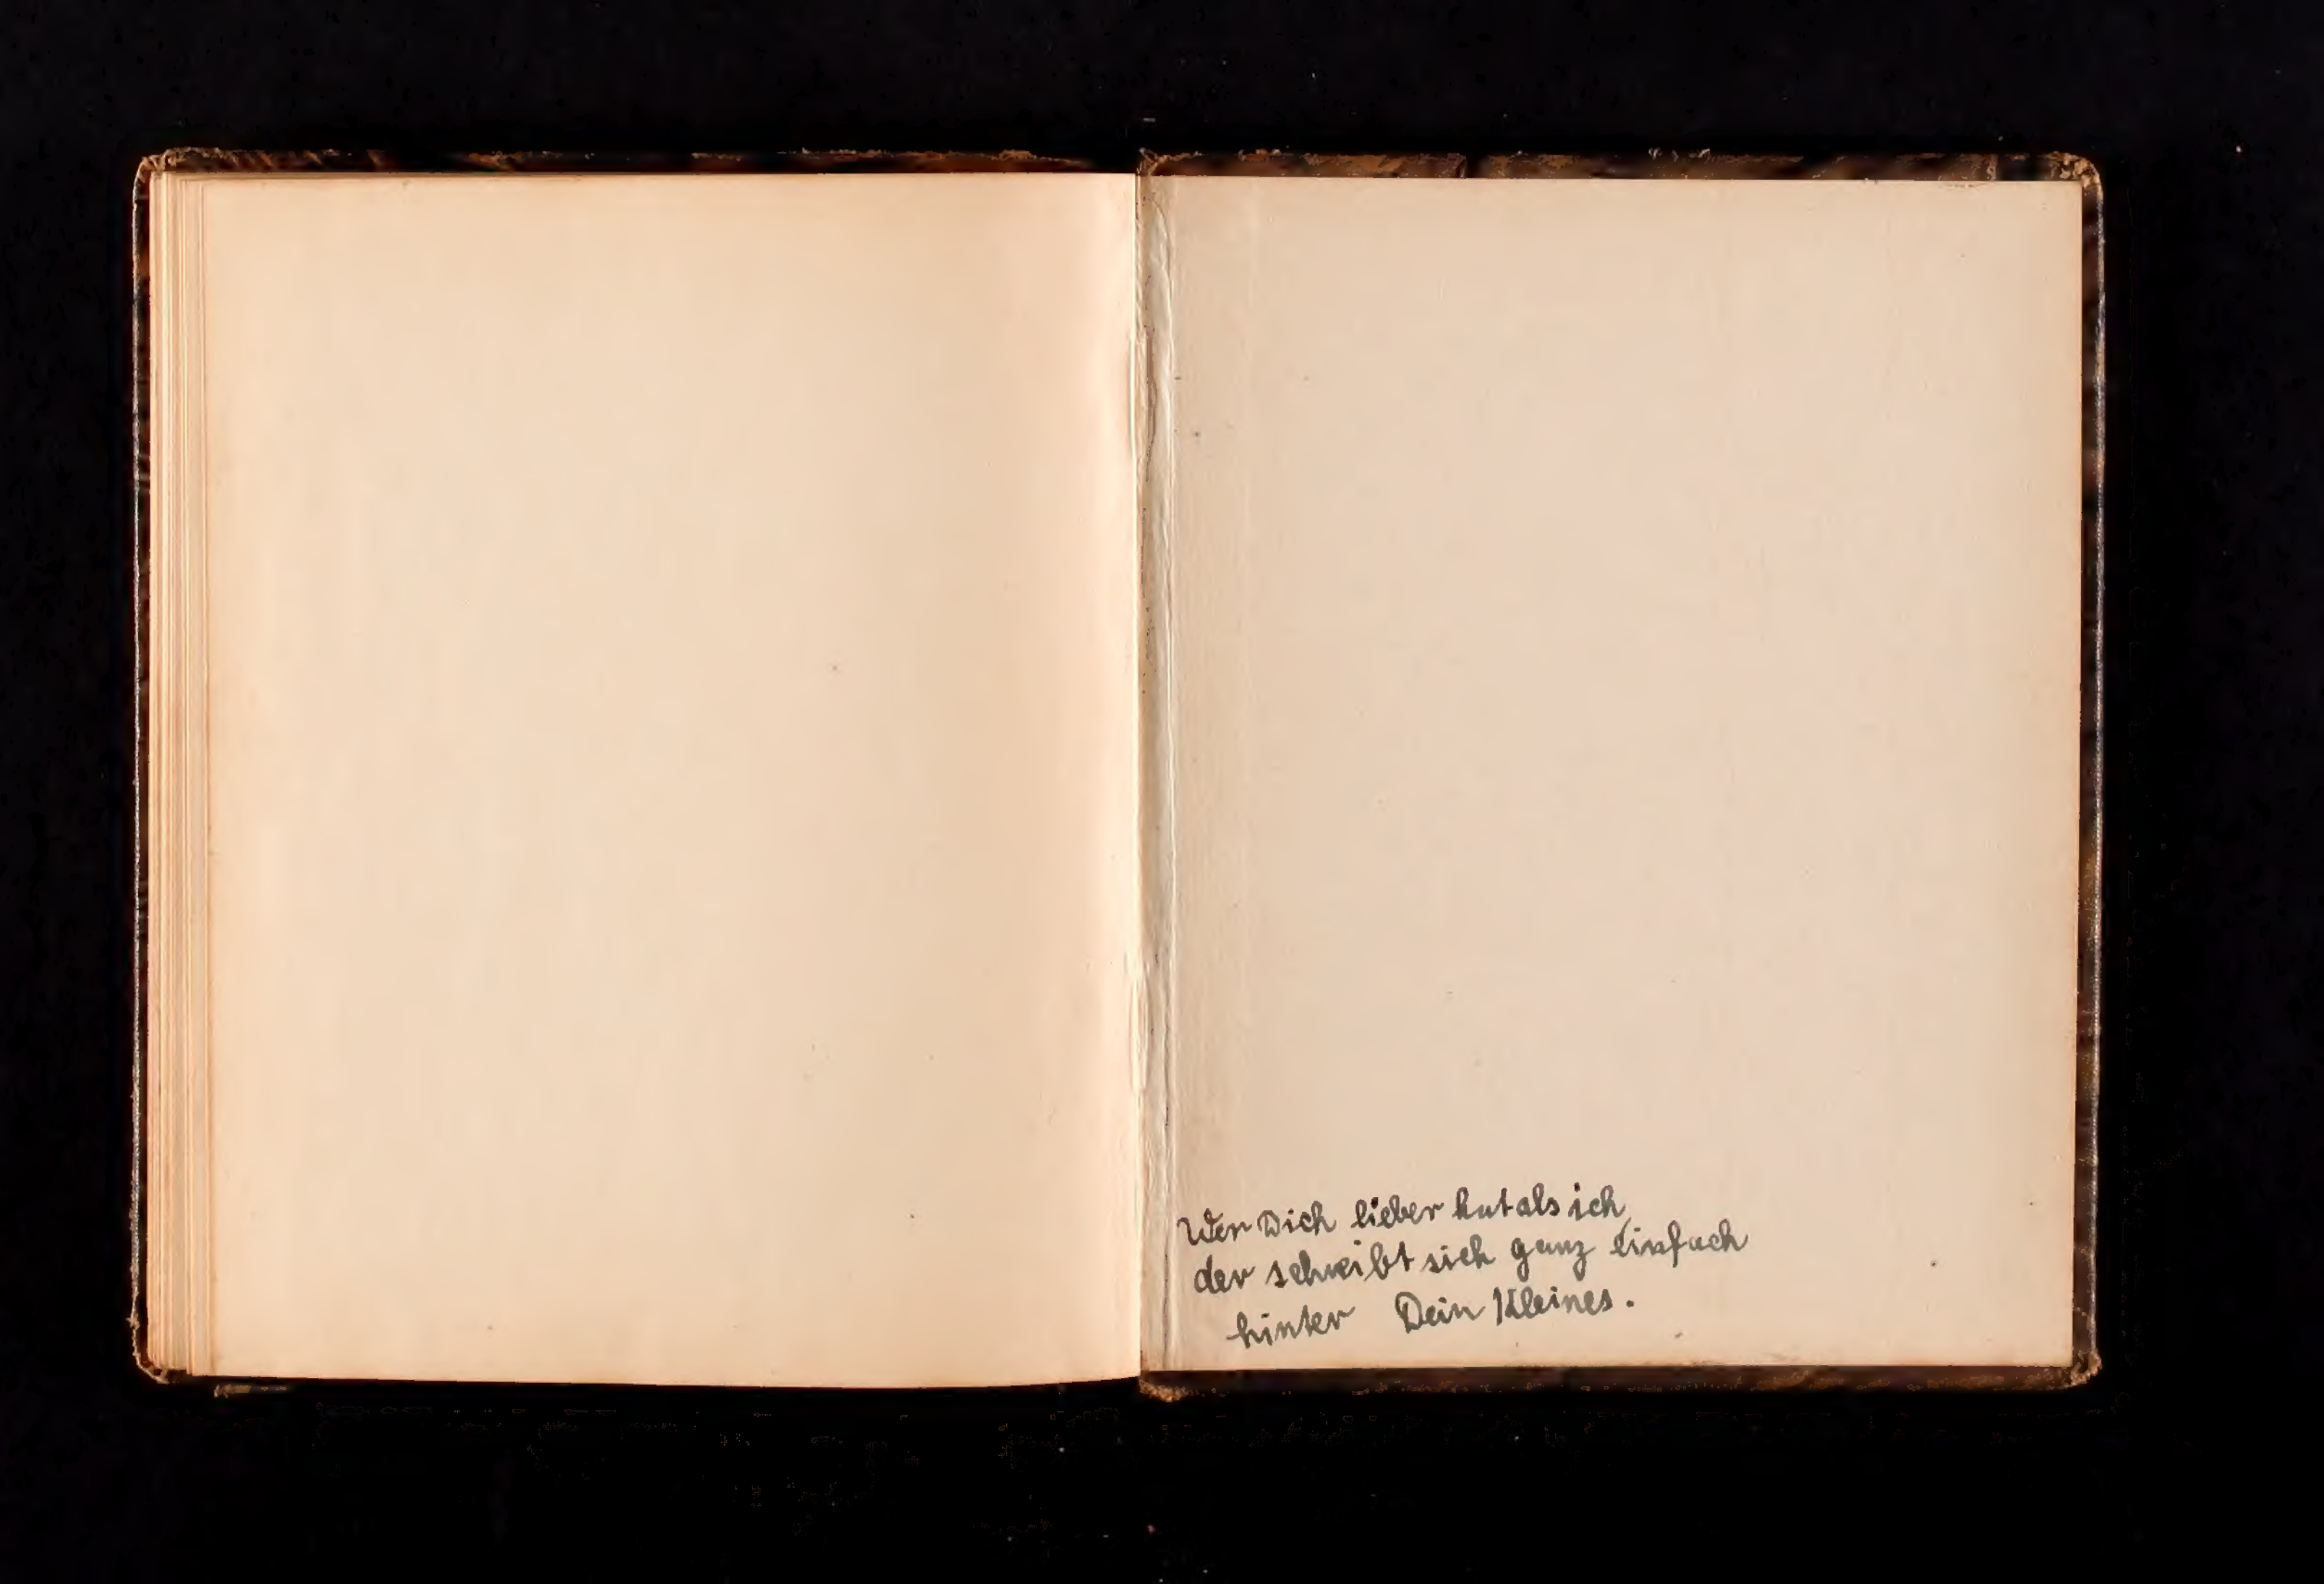 Wer Dich lieber hat als ich,
der schreibt sich ganz einfach
hinter Dein Kleines.